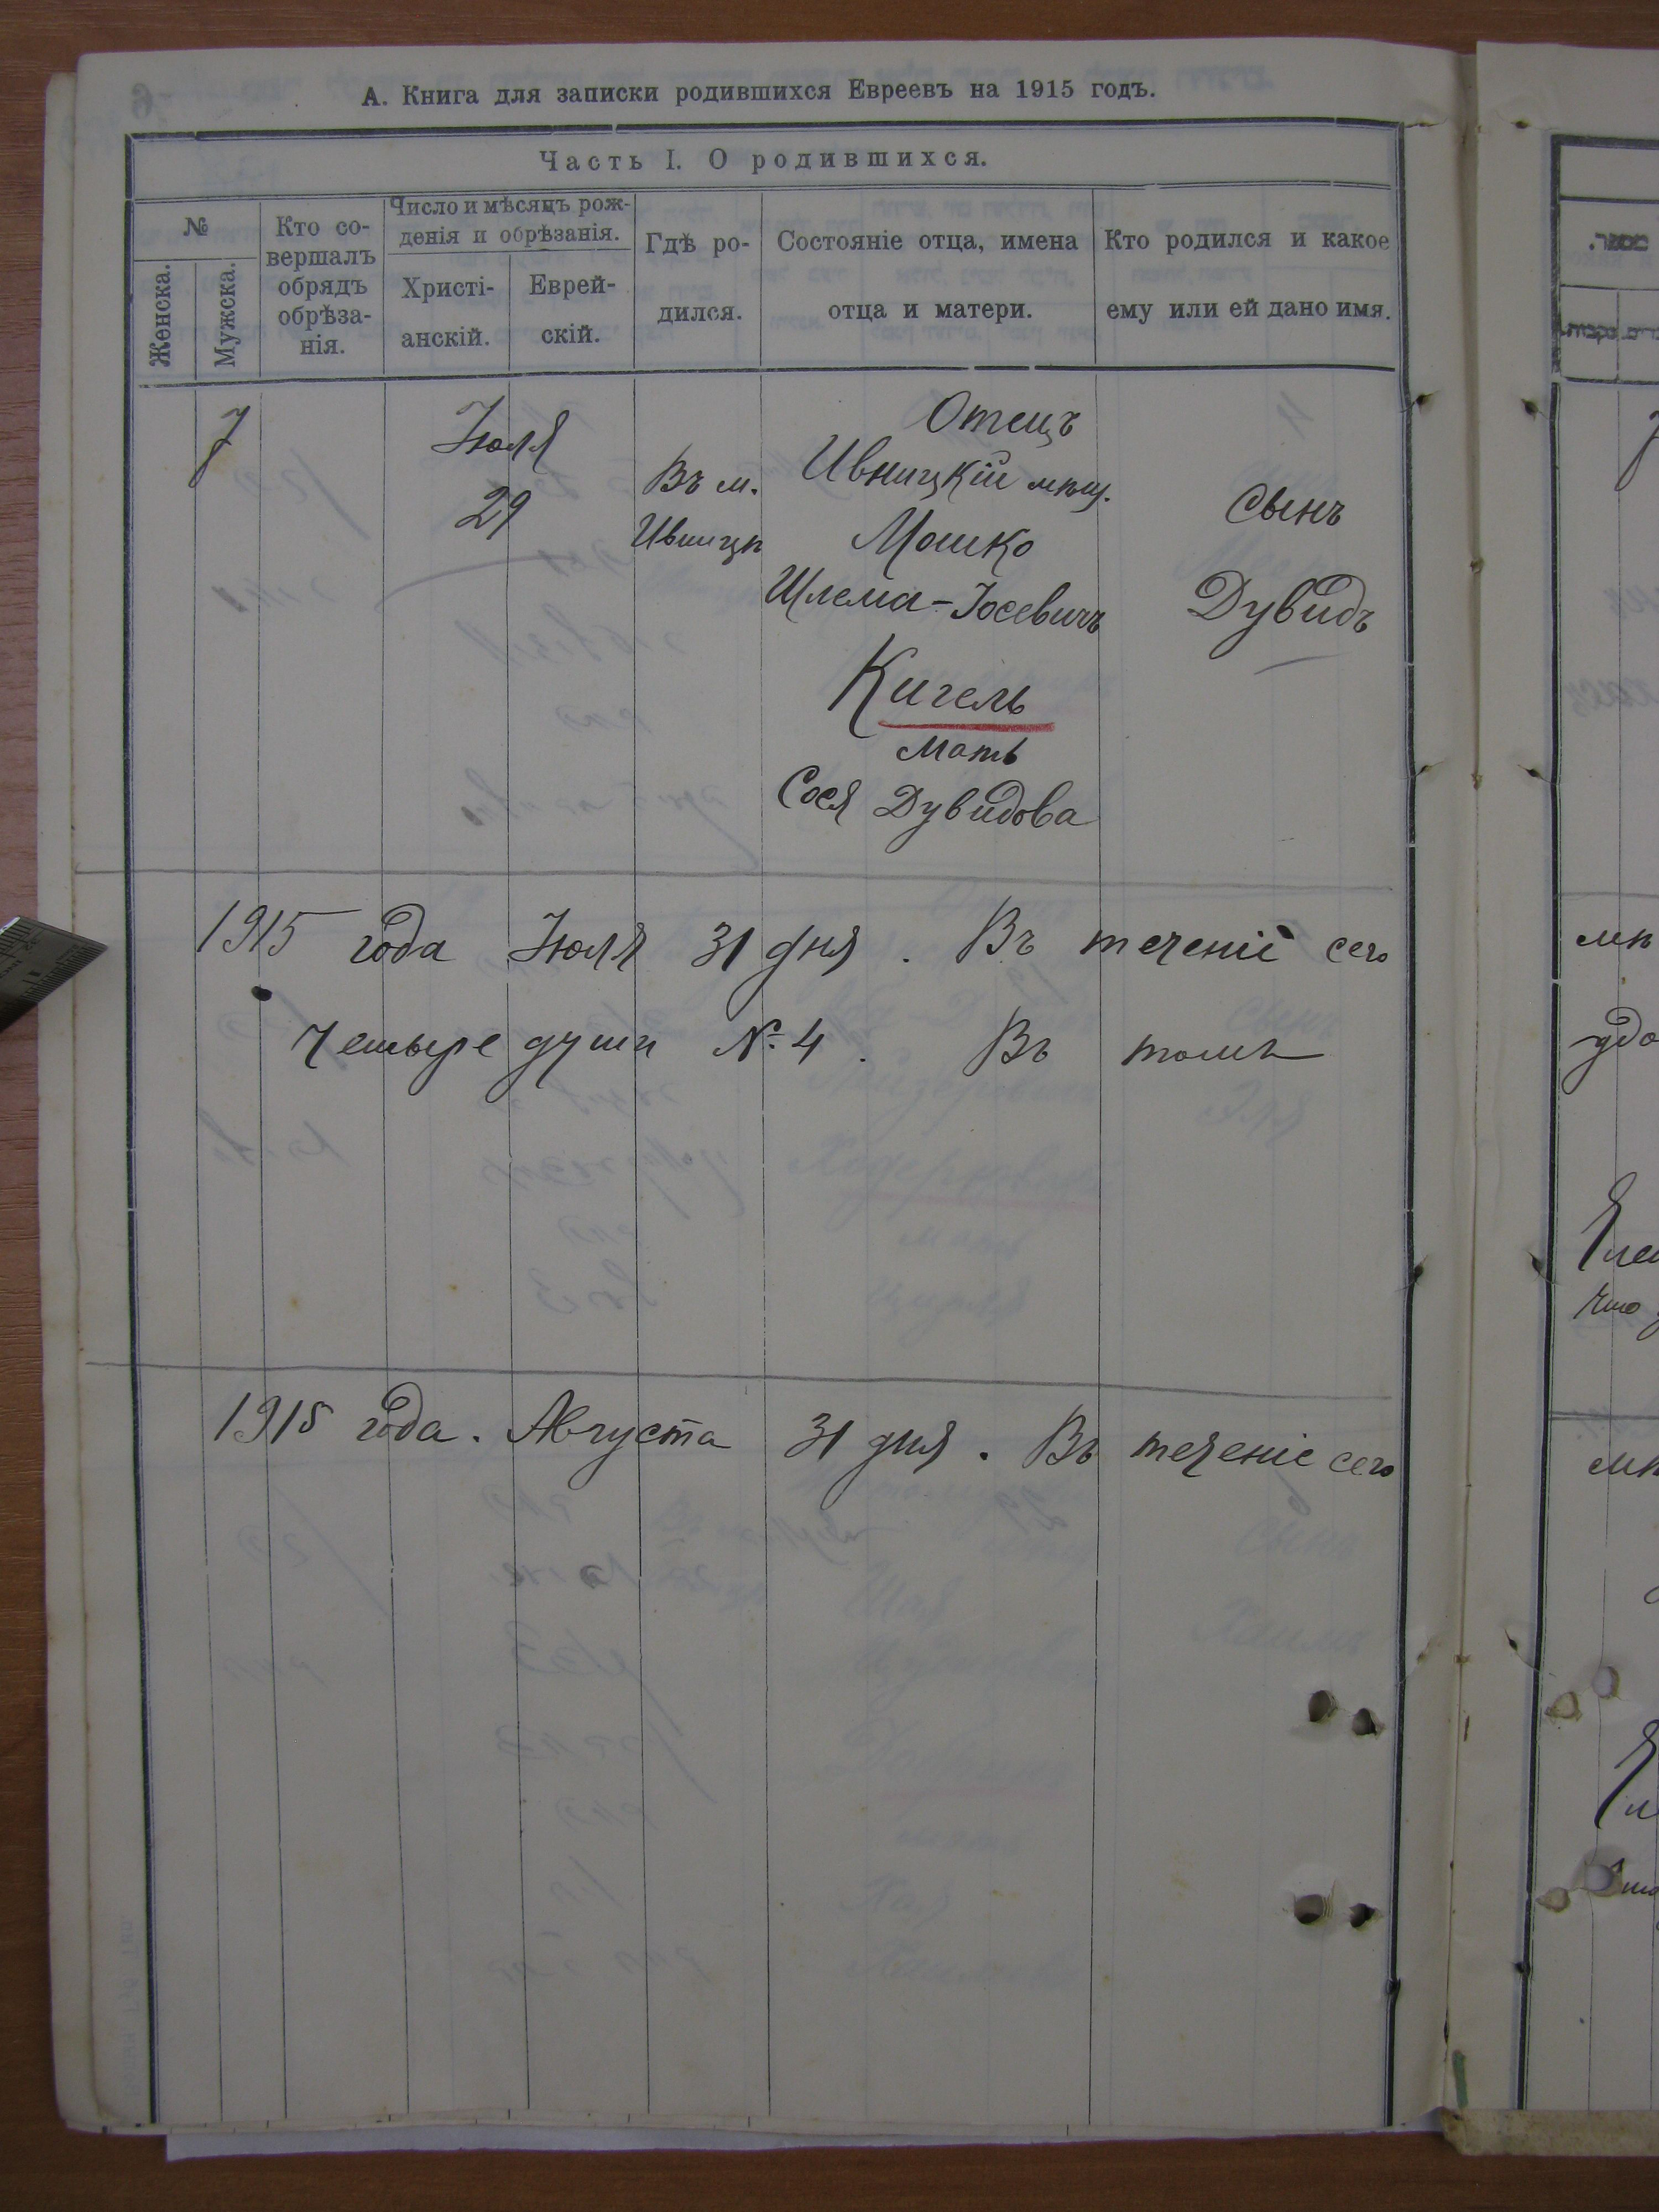 А. Книга для записки родившихся Евреевъ на 1915 годъ.
Часть I. О родившихся.
№
Женска.
Мужска.
Кто со-
вершалъ
обрядъ
обрѣза-
нія.
Число и мѣсяцъ рож-
денія и обрѣзанія.
Христі-
анскій.
Еврей-
скій.
Гдѣ ро-
дился.
Состояніе отца, имена
отца и матери.
Кто родился и какое
ему или ей дано имя.
7
Іюля
29
Въ м.
Ивницѣ
Отецъ
Ивницкій мѣщ.
Мошко
Шлема-Іосевичъ
Кигель
мать
Сося Дувидова
сынъ
Дувидъ
1915 года Іюля 31 дня. Въ теченіі сего
Четыре души № 4. Въ томъ
1915 года. Августа 31 дня. Въ теченіе сего